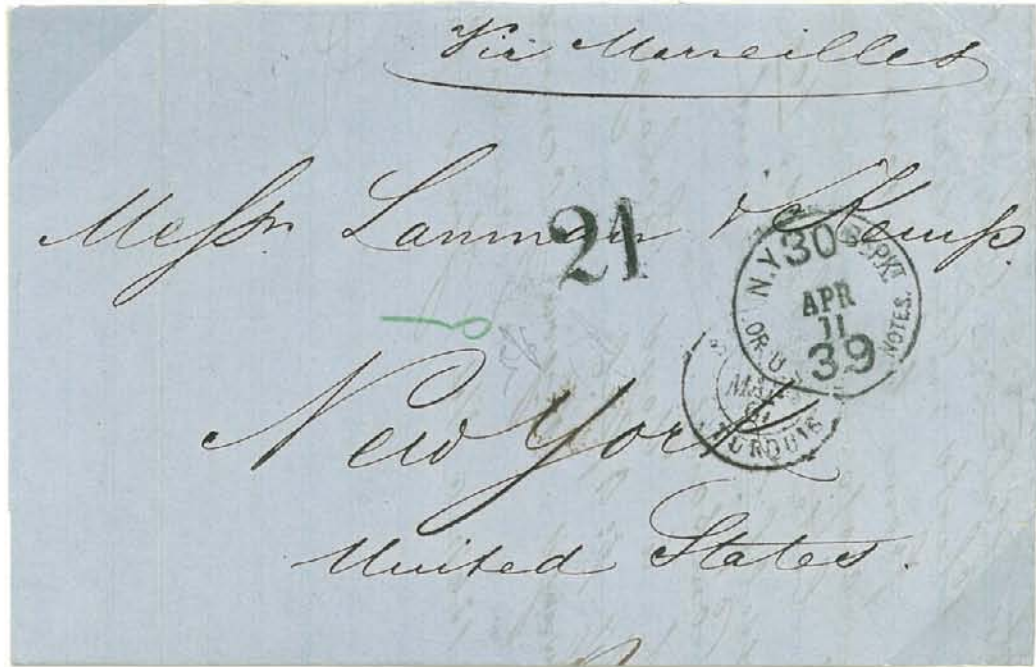 Via Marseilles
Messrs. Lanman & Kemp.
21
N.Y. 30 PKT
APR
11
39
OR U NOTES.
TURQUIE
New York
United States.